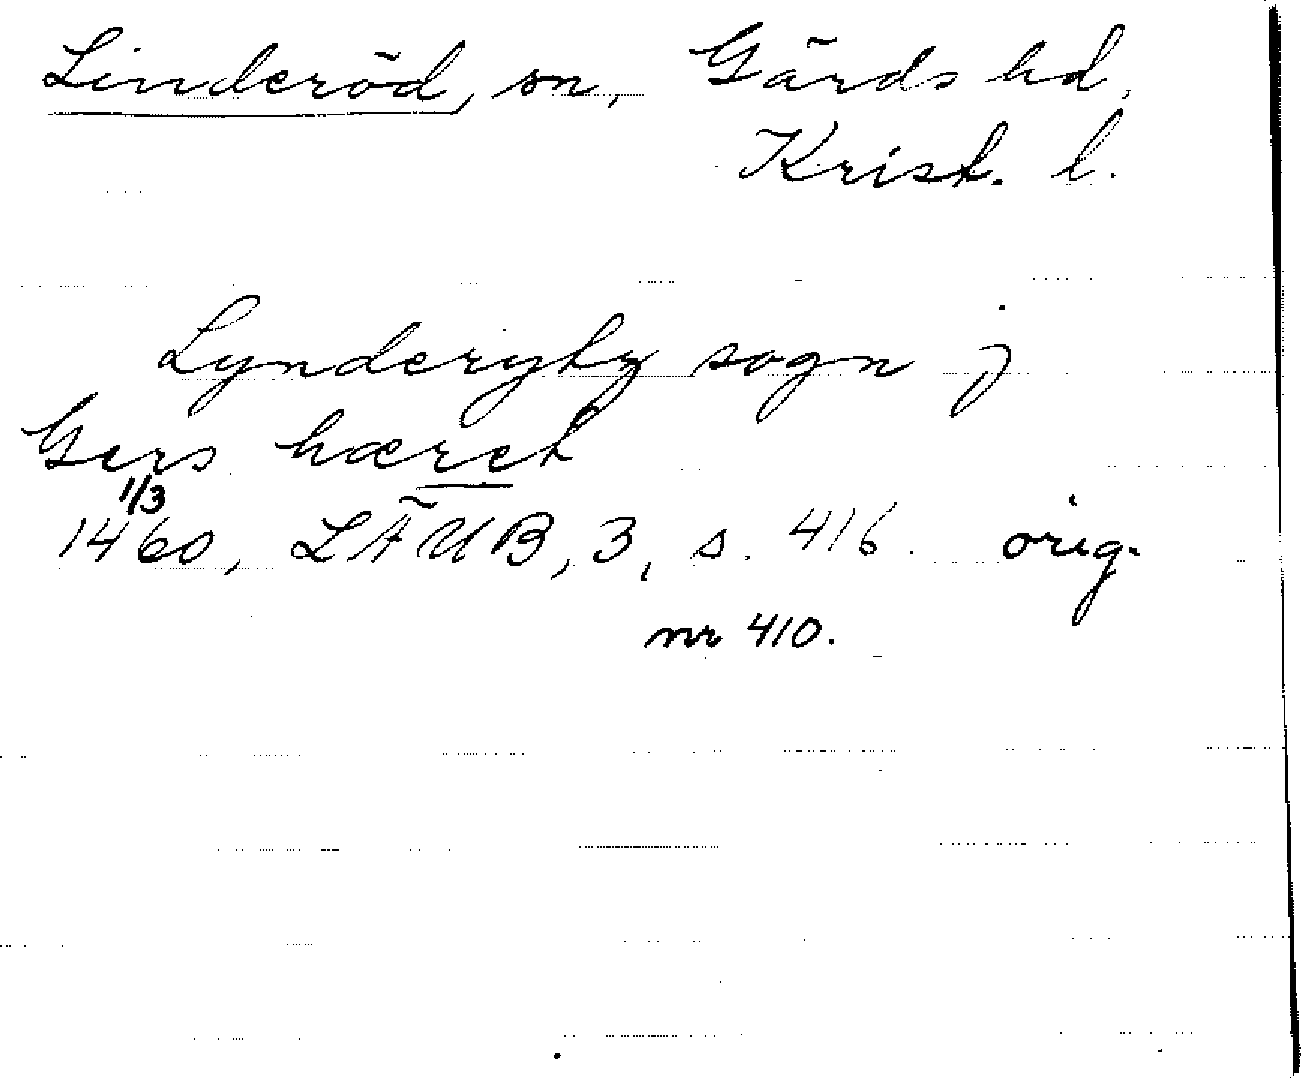 Linderöd, sn, Gärds hd,
Krist. l.
Lynderyby sogn j
Gers hæret
1/3
1460, LÄUB, 3, s. 416. orig.
nr 410.